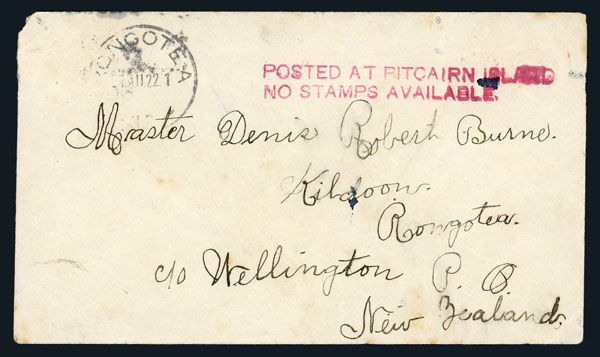 RONGOTEA
22
POSTED AT PITCAIRN ISLAND
NO STAMPS AVAILABLE.
Master Denis Robert Burne.
Kildoon.
Rongotea.
c/o Wellington P. O
New Zealand.